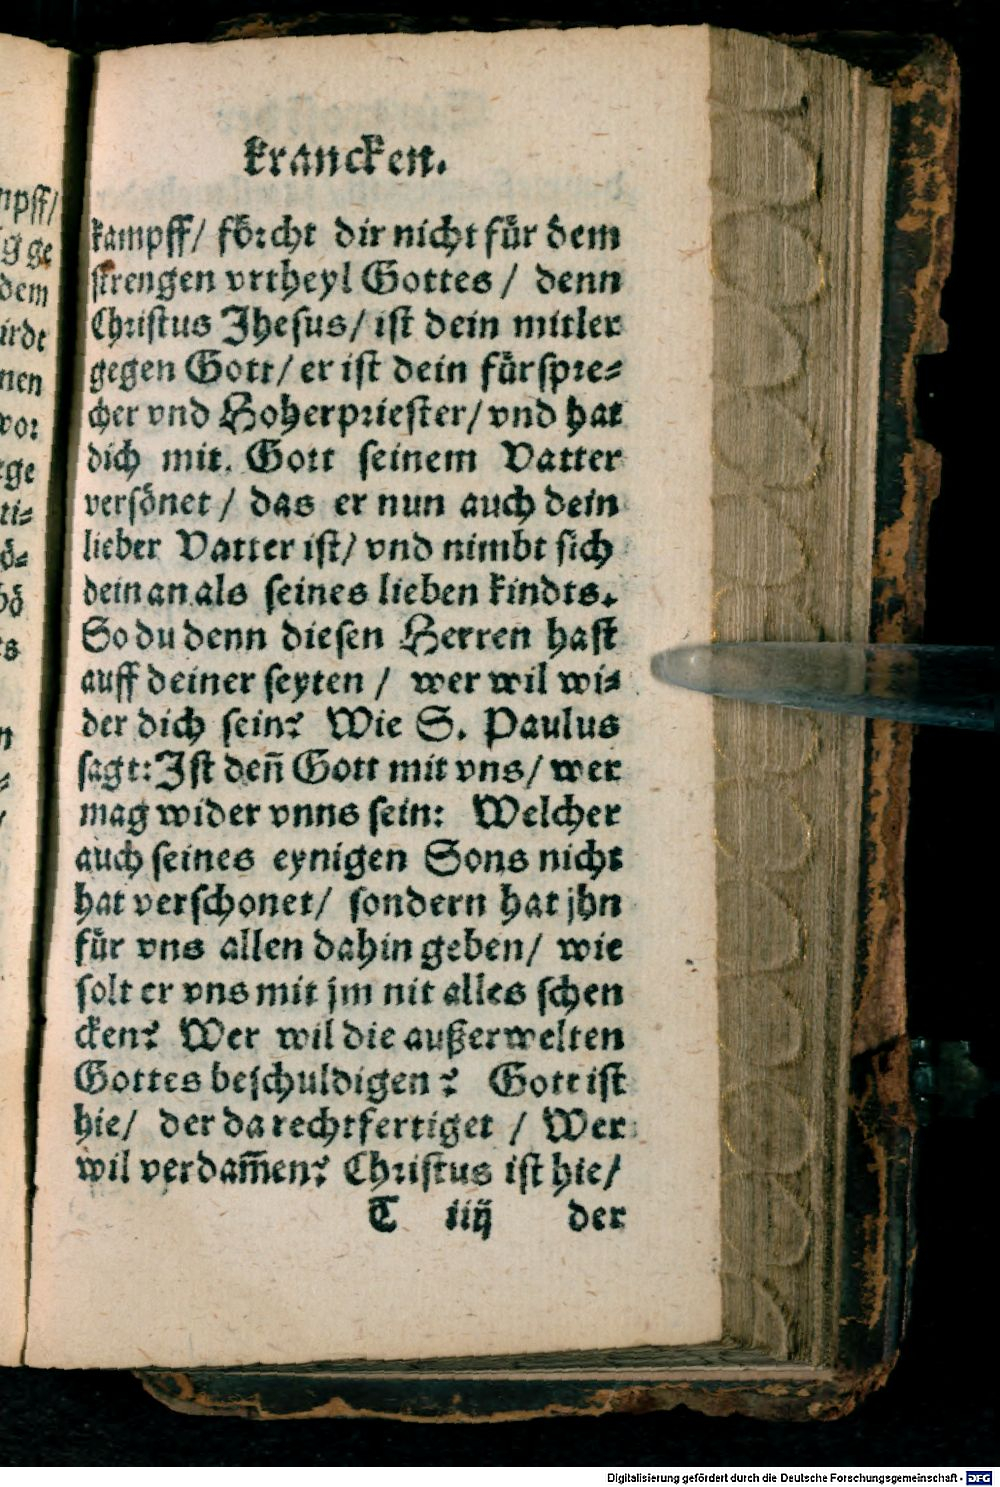 krancken.
kampff/ förcht dir nicht für dem
strengen vrtheyl Gottes / denn
Christus Jhesus/ ist dein mitler
gegen Gott/ er ist dein fürspre⸗
cher vnd Hoherpriester/ vnd hat
dich mit. Gott seinem Vatter
versönet / das er nun auch dein
lieber Vatter ist/ vnd nimbt sich
dein an als seines lieben kindts.
So du denn diesen Herren hast
auff deiner seyten / wer wil wi⸗
der dich sein? Wie S. Paulus
sagt: Ist deñ Gott mit vns/ wer
mag wider vnns sein: Welcher
auch seines eynigen Sons nicht
hat verschonet/ sondern hat jhn
für vns allen dahin geben/ wie
solt er vns mit jm nit alles schen
cken? Wer wil die außerwelten
Gottes beschuldigen? Gott ist
hie/ der da rechtfertiget / Wer
wil verdam̃en? Christus ist hie/
T iiij der
mpff/
g ge
dem
irdt
nen
vor
ege
ti⸗
ö⸗
bö
ts
n
Digitalisierung gefördert durch die Deutsche Forschungsgemeinschaft - DFG